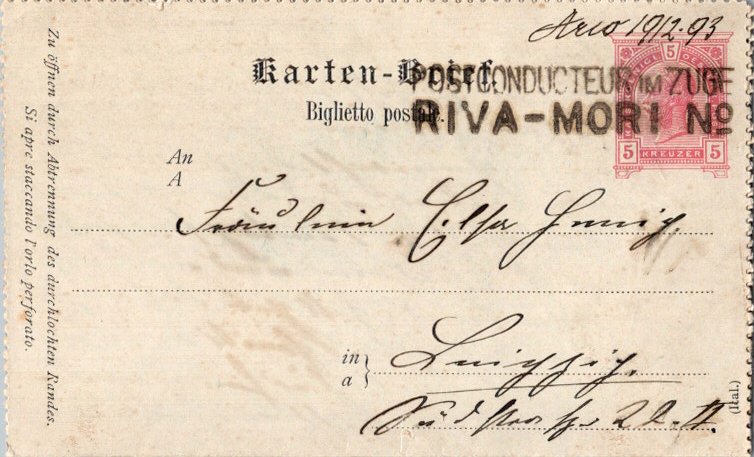 Arco 19/12.93
Karten-Brief.
Biglietto postale.
POSTCONDUCTEUR IM ZUGE
RIVA-MORI No
5
5 KREUZER 5
An
A
Fräulein Elsa
in
a
Leipzig.
Südstrasse 22. II
(Ital.)
Zu öffnen durch Abtrennung des durchlochten Randes.
Si apre staccando l'orlo perforato.